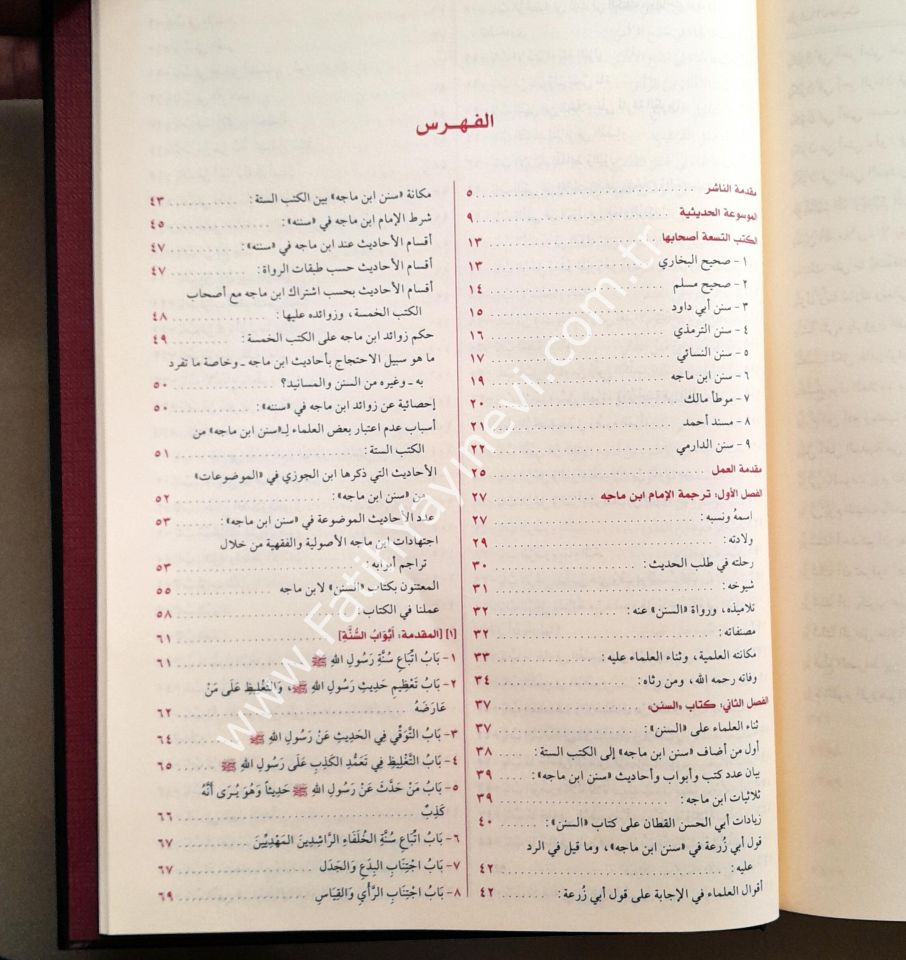 الفهرس
مقدمة الناشر ٥
الموسوعة الحديثية ٩
الكتب التسعة أصحابها ١٣
١ - صحيح البخاري ١٣
٢ - صحيح مسلم ١٤
٣ - سنن أبي داود ١٥
٤ - سنن الترمذي ١٦
٥ - سنن النسائي ١٧
٦ - سنن ابن ماجه ١٩
٧ - موطأ مالك ٢٠
٨ - مسند أحمد ٢١
٩ - سنن الدارمي ٢٢
مقدمة العمل ٢٥
الفصل الأول: ترجمة الإمام ابن ماجه ٢٧
اسمهُ ونسبه: ٢٧
ولادته: ٢٩
رحلته في طلب الحديث: ٣٠
شيوخه: ٣١
تلاميذه، ورواة «السنن» عنه: ٣٢
مصنفاته: ٣٢
مكانته العلمية، وثناء العلماء عليه: ٣٣
وفاته رحمه الله، ومن رثاه: ٣٤
الفصل الثاني: كتاب «السنن» ٣٧
ثناء العلماء على «السنن»: ٣٧
أول من أضاف «سنن ابن ماجه» إلى الكتب الستة: ٣٨
بيان عدد كتب وأبواب وأحاديث «سنن ابن ماجه»: ٣٩
ثلاثيات ابن ماجه: ٣٩
زيادات أبي الحسن القطان على كتاب «السنن»: ٤٠
قول أبي زُرعة في «سنن ابن ماجه»، وما قيل في الرد
عليه: ٤٢
أقوال العلماء في الإجابة على قول أبي زُرعة: ٤٢
مكانة «سنن ابن ماجه» بين الكتب الستة: ٤٣
شرط الإمام ابن ماجه في «سننه»: ٤٥
أقسام الأحاديث عند ابن ماجه في «سننه»: ٤٧
أقسام الأحاديث حسب طبقات الرواة: ٤٧
أقسام الأحاديث بحسب اشتراك ابن ماجه مع أصحاب
الكتب الخمسة، وزوائده عليها: ٤٨
حكم زوائد ابن ماجه على الكتب الخمسة: ٤٩
ما هو سبيل الاحتجاج بأحاديث ابن ماجه - وخاصة ما تفرد
به - وغيره من السنن والمسانيد؟ ٥٠
إحصائية عن زوائد ابن ماجه في «سننه»: ٥٠
أسباب عدم اعتبار بعض العلماء لـ«سنن ابن ماجه» من
الكتب الستة: ٥١
الأحاديث التي ذكرها ابن الجوزي في «الموضوعات»
من «سنن ابن ماجه»: ٥٢
عدد الأحاديث الموضوعة في «سنن ابن ماجه»: ٥٣
اجتهادات ابن ماجه الأصولية والفقهية من خلال
تراجم أبوابه: ٥٣
المعتنون بكتاب «السنن» لابن ماجه ٥٥
عملنا في الكتاب: ٥٨
[١] [المقدمة: أَبْوَابُ السُّنَّةِ] ٦١
١- بَابُ اتِّبَاعِ سُنَّةِ رَسُولِ اللهِ ﷺ ٦١
٢- بَابُ تَعْظِيمِ حَدِيثِ رَسُولِ اللهِ ﷺ، وَالتَّغْلِيظِ عَلَى مَنْ
عَارَضَهُ ٦٢
٣- بَابُ التَّوَقِّي فِي الحَدِيثِ عَنْ رَسُولِ اللهِ ﷺ ٦٤
٤- بَابُ التَّغْلِيظِ فِي تَعَمُّدِ الكَذِبِ عَلَى رَسُولِ اللهِ ﷺ ٦٥
٥- بَابُ مَنْ حَدَّثَ عَنْ رَسُولِ اللهِ ﷺ حَدِيثاً وَهُوَ يُرَى أَنَّهُ
كَذِبٌ ٦٦
٦- بَابُ اتِّبَاعِ سُنَّةِ الخُلَفَاءِ الرَّاشِدِينَ المَهْدِيِّينَ ٦٧
٧- بَابُ اجْتِنَابِ البِدَعِ وَالجَدَلِ ٦٧
٨- بَابُ اجْتِنَابِ الرَّأْيِ وَالقِيَاسِ ٦٩
www.Fatihyayinevi.com.tr